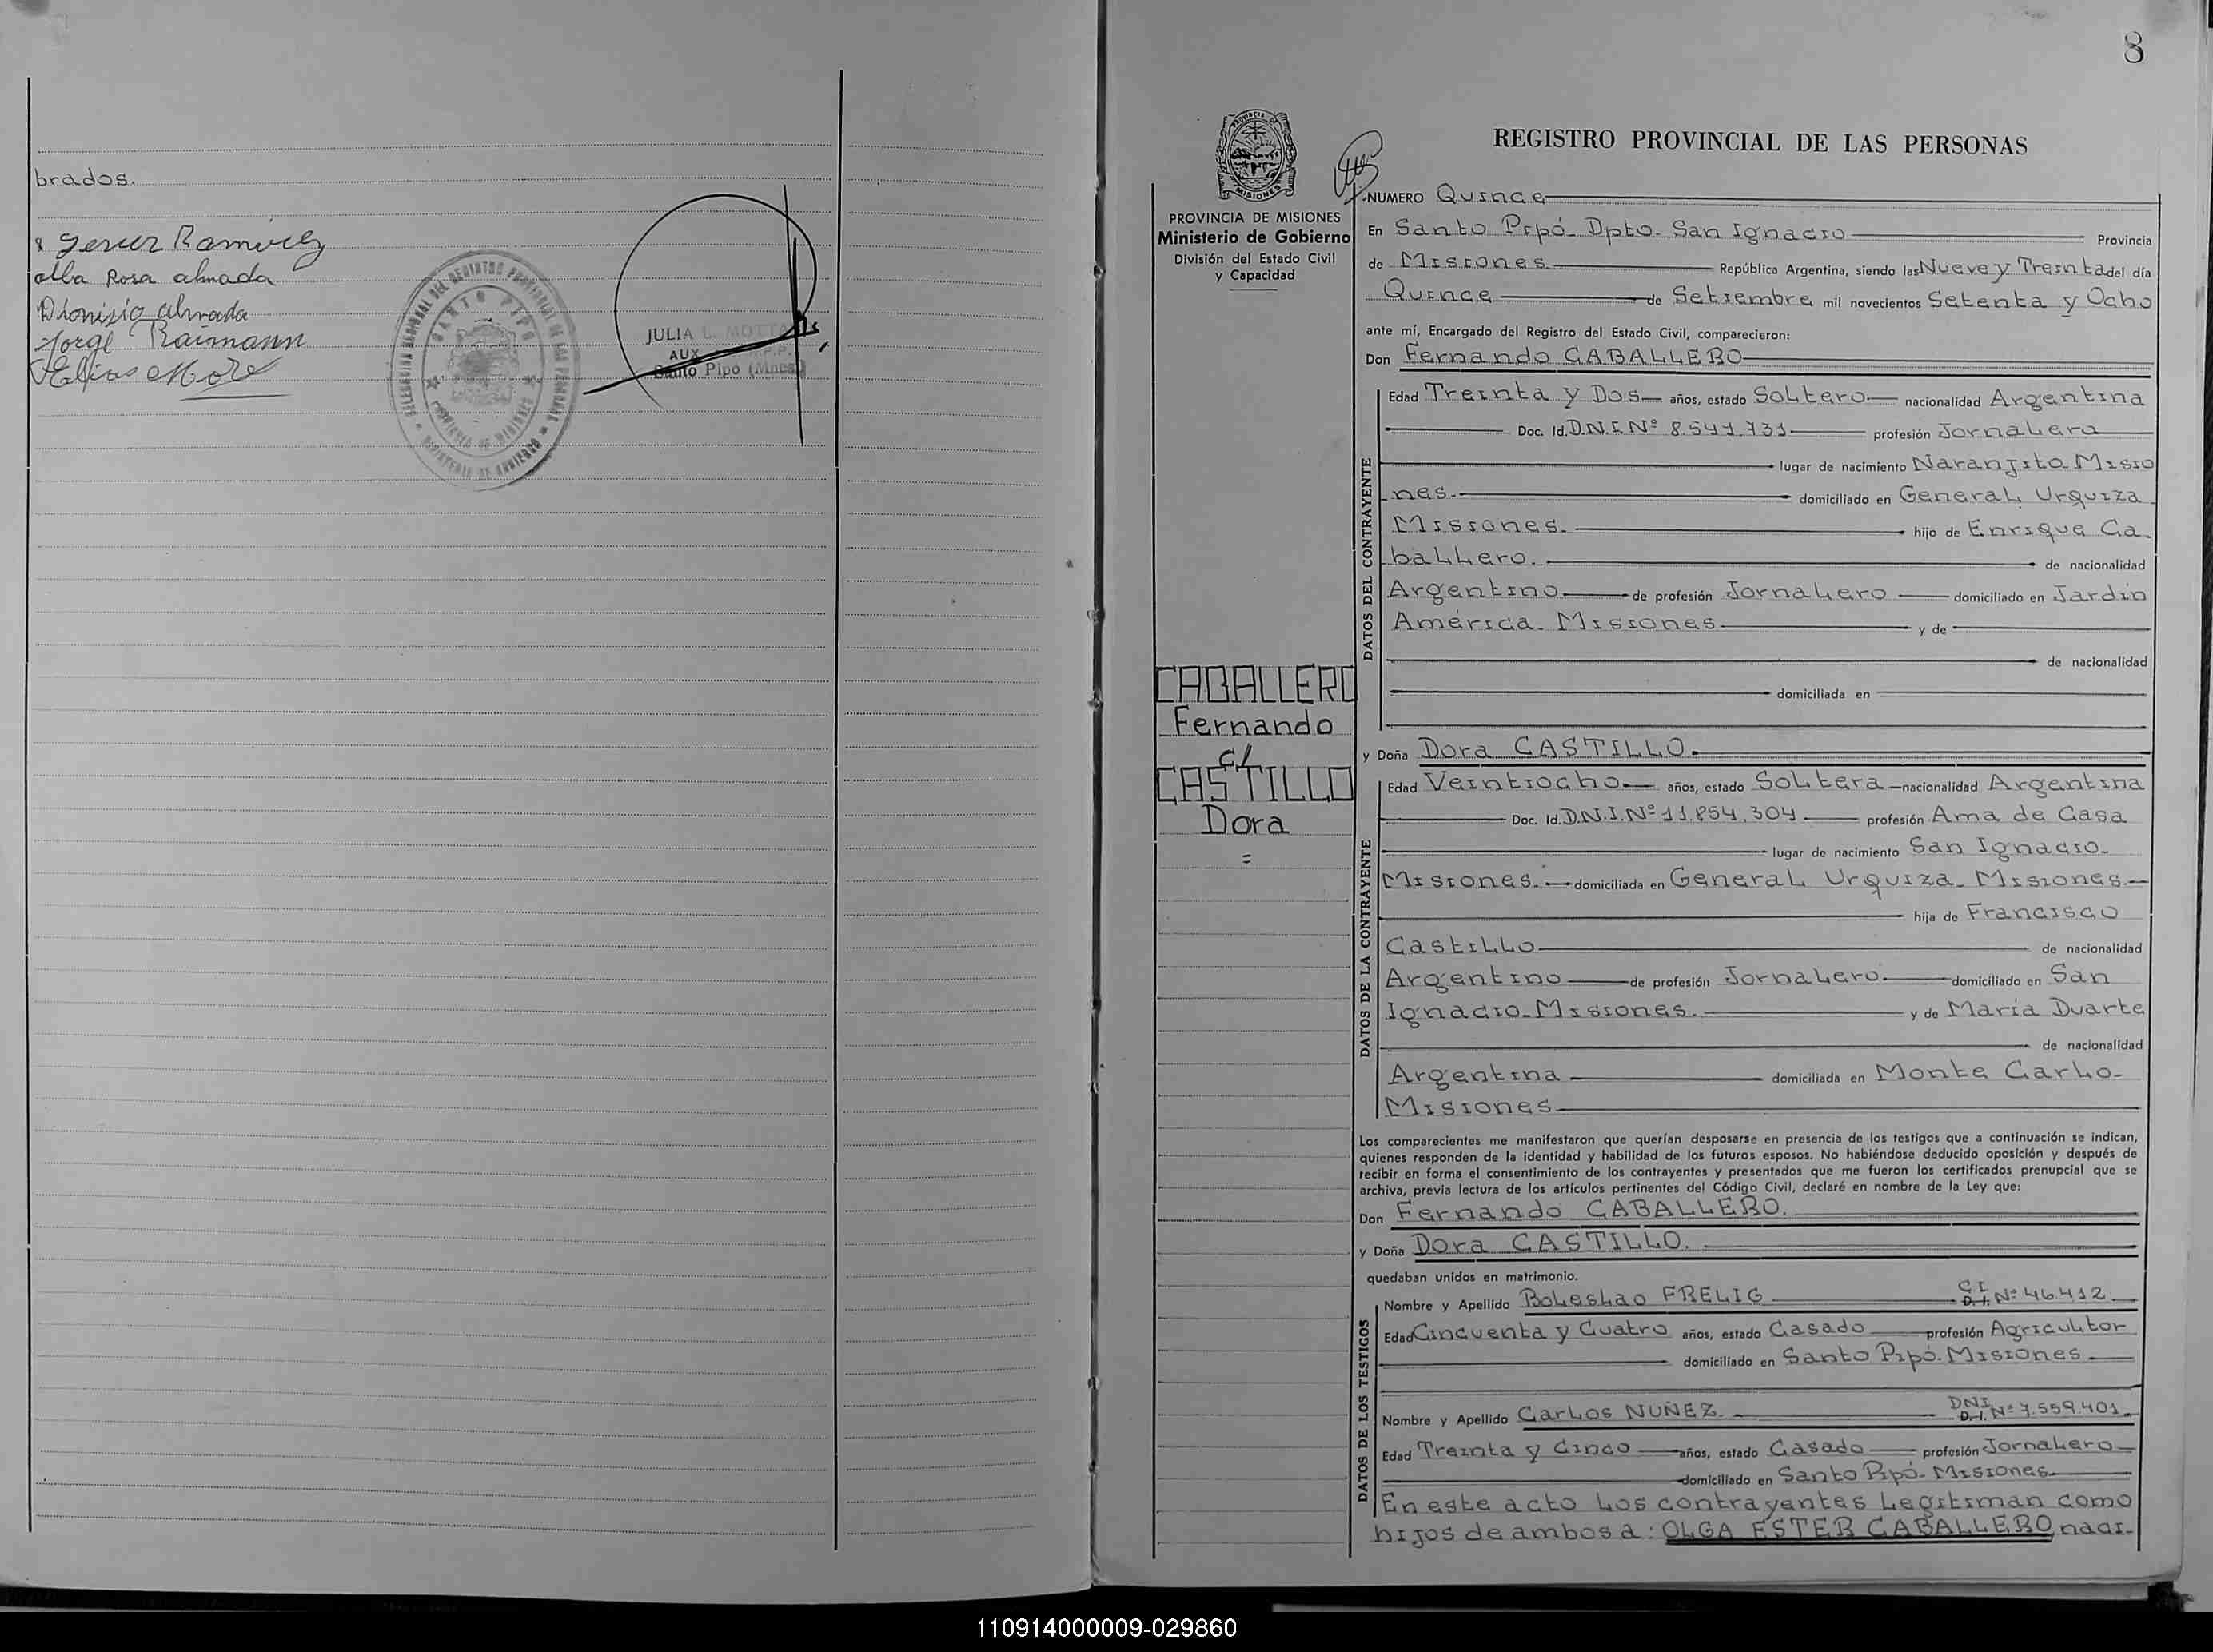 brados.
Alba Rosa Almada
Dionisio Almada
Jorge Raimann
JULIA L. MOTTA
AUX.
Santo Pipó (Mnes)
SANTO PIPO
PROVINCIA DE MISIONES
8
REGISTRO PROVINCIAL DE LAS PERSONAS
PROVINCIA
MISIONES
PROVINCIA DE MISIONES
Ministerio de Gobierno
División del Estado Civil
y Capacidad
CABALLERO
Fernando
c/
CASTILLO
Dora
=
NUMERO Quince
En Santo Pipó- Dpto- San Ignacio Provincia
de Misiones República Argentina, siendo las Nueve y Treinta del día
Quince de Setiembre mil novecientos Setenta y Ocho
ante mí, Encargado del Registro del Estado Civil, comparecieron:
Don Fernando CABALLERO
DATOS DEL CONTRAYENTE
Edad Treinta y Dos años, estado Soltero nacionalidad Argentina
Doc. Id. D.N.I. Nº 8.541.731 profesión Jornalero
lugar de nacimiento Naranjito Misio
nes. domiciliado en General Urquiza
Misiones. hijo de Enrique Ca-
ballero. de nacionalidad
Argentino de profesión Jornalero domiciliado en Jardín
América- Misiones y de
de nacionalidad
domiciliada en
y Doña Dora CASTILLO.
DATOS DE LA CONTRAYENTE
Edad Veintiocho años, estado Soltera nacionalidad Argentina
Doc. Id. D.N.I. Nº 11.854.304 profesión Ama de Casa
lugar de nacimiento San Ignacio-
Misiones. domiciliada en General Urquiza- Misiones.
hija de Francisco
Castillo de nacionalidad
Argentino de profesión Jornalero. domiciliado en San
Ignacio- Misiones. y de María Duarte
de nacionalidad
Argentina domiciliada en Monte Carlo-
Misiones
Los comparecientes me manifestaron que querían desposarse en presencia de los testigos que a continuación se indican,
quienes responden de la identidad y habilidad de los futuros esposos. No habiéndose deducido oposición y después de
recibir en forma el consentimiento de los contrayentes y presentados que me fueron los certificados prenupcial que se
archiva, previa lectura de los artículos pertinentes del Código Civil, declaré en nombre de la Ley que:
Don Fernando CABALLERO.
y Doña Dora CASTILLO.
quedaban unidos en matrimonio.
DATOS DE LOS TESTIGOS
Nombre y Apellido Boleslao FRELIG C.I. D.I. Nº 46.412
Edad Cincuenta y Cuatro años, estado Casado profesión Agricultor
domiciliado en Santo Pipó- Misiones
Nombre y Apellido Carlos NUÑEZ. DNI D.I. Nº 7.559.401
Edad Treinta y Cinco años, estado Casado profesión Jornalero
domiciliado en Santo Pipó- Misiones
En este acto los contrayentes legitiman como
hijos de ambos a: OLGA ESTER CABALLERO naci-
110914000009-029860